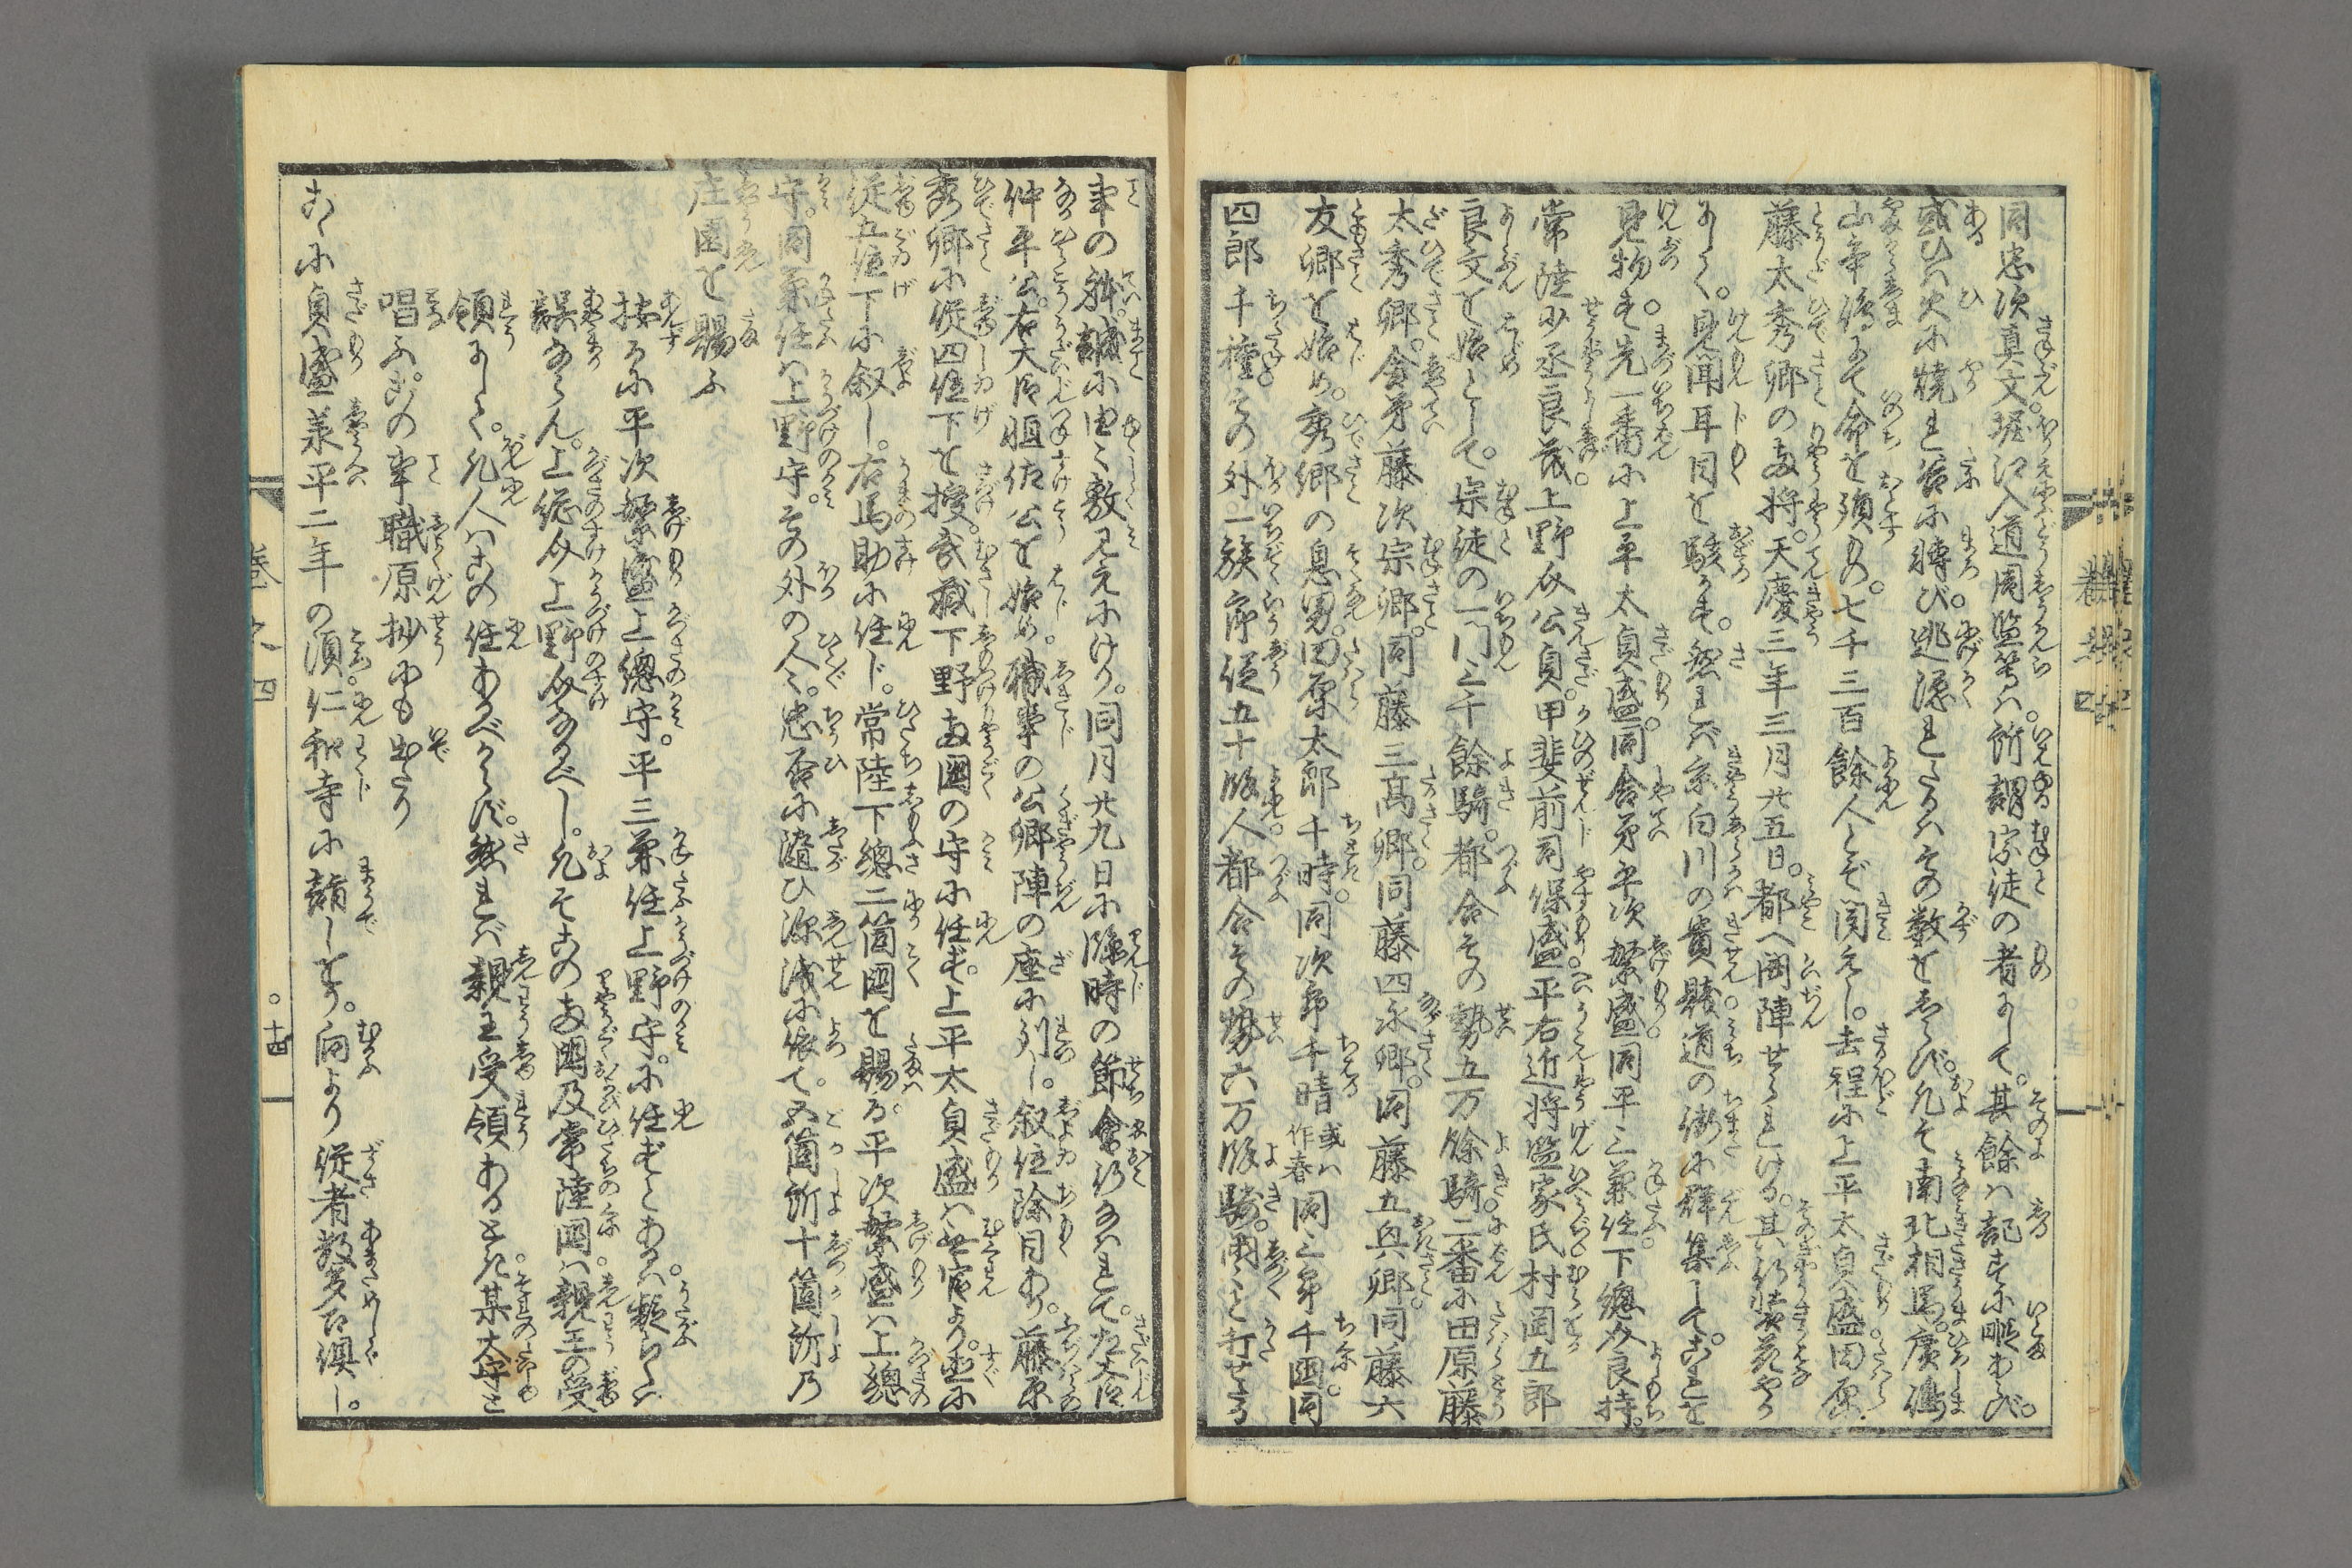 同忠次真文。堀江入道周監等ハ。所謂宗徒の者にして。其餘ハ記すに暇あらず。
或ひハ火に焼れ谷に轉び。逃隠れたるハその数をしらず。凡そ南北相馬。廣嶋
山辛嶋にて命を殞もの。七千三百餘人とぞ聞えし。去程に上平太貞盛田原
藤太秀卿の両将。天慶三年三月廿五日。都へ凱陣せられける。其行装花やか
にして。見聞耳目を駭かす。然れバ京白川の貴賤道の街に群集して。これを
見物す。先一番に上平太貞盛。同舎弟平次繁盛。同平三兼任下總介良持。
常陸少丞良茂。上野介公貞。甲斐前司保盛。平右近将監家氏村岡五郎
良文を始として。宗徒の一門三千餘騎。都合その勢五万餘騎。二番に田原藤
太秀卿。舎弟藤次宗卿。同藤三高卿。同藤四永卿。同藤五興卿。同藤六
友卿を始め。秀卿の息男。田原太郎千時。同次郎千晴或ハ作春同三郎千国同
四郎千種。その外一族郎従五十餘人都合その勢六万餘騎。閑々と打せたる
事の躰。誠に由々敷見えにけり。同月廿九日に臨時の節會行なハれて。左大臣
仲平公。右大臣恒佐公を始め。職事の公卿陣の座に列し。叙位除目あり。藤原
秀卿に従四位下を授。武蔵下野両国の守に任ず。上平太貞盛ハ無官より。直に
従五位下に叙し。右馬助に任ジ。常陸下總二箇國を賜る。平次繁盛ハ上總
守。同兼任ハ上野守。その外の人々。忠否に隨ひ源浅に依て。五箇所十箇所乃
庄園を賜ふ
按るに平次繁盛上總守。平三兼任上野守。に任ずとあるハ。疑らくハ
誤ならん。上総介上野介なるべし。凡そこの両國及常陸国ハ。親王の受
領にして。凡人ハこの任あるべからず。然れバ親王受領あるときハ。某太守と
唱ふ。この事職原抄にも出たり
こゝに貞盛承平二年の頃。仁和寺に詣しとき。向より従者数多召倶し。
巻之四
十四